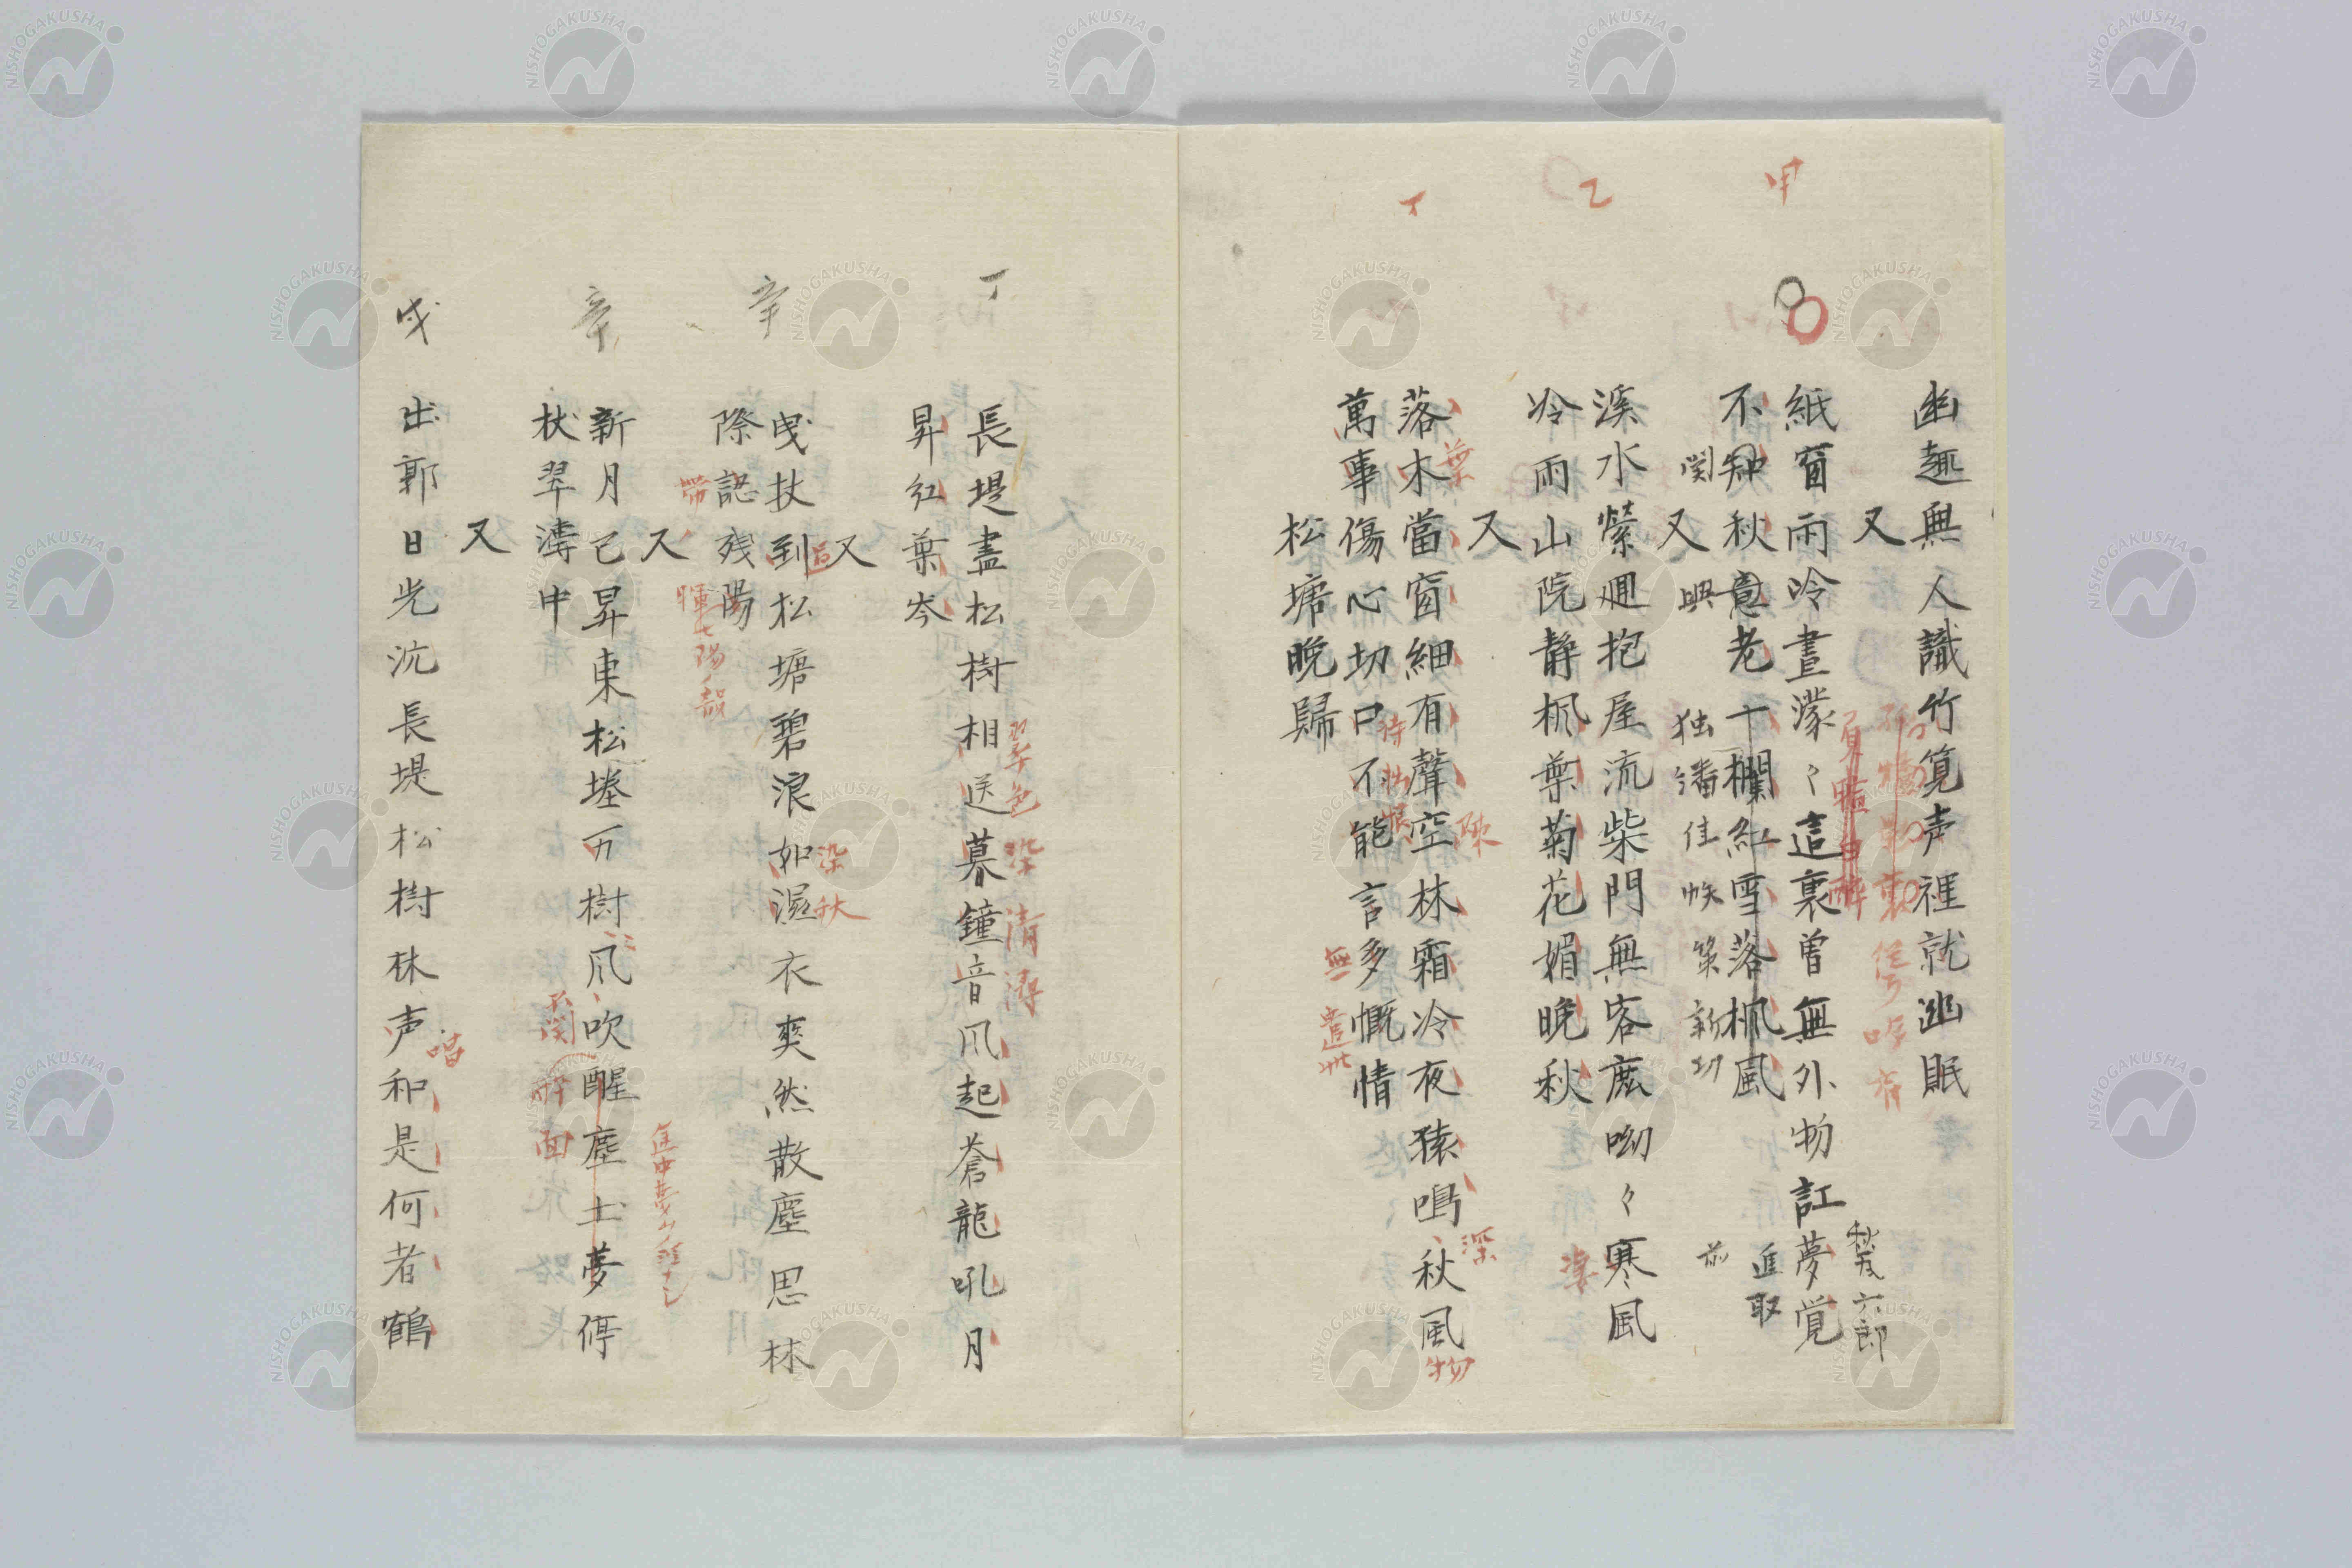 幽趣無人識竹筧声裡就幽眠
又
甲
紙窗雨冷晝濛々這裏曽無外物訌夢覚
不知秋意老一欄紅雪落楓風
関
興
独繙佳帙策新功
進取
又
乙
溪水縈廻抱屋流柴門無客鹿呦々寒風
冷雨山院静楓葉菊花媚晩秋
又
丁
落木當窗細有聲空林霜冷夜猿鳴秋風
葉
深
物
萬事傷心切口不能言多慨情
無
松塘晩歸
丁
長堤盡松樹相送暮鐘音凨起蒼龍吼月
翠色
染
清
昇紅葉岑
又
辛
曳扶到松塘碧浪如濕衣爽然散塵思林
染
秋
際認残陽
帶
又
辛
新月已昇東松埜万樹凨吹醒塵土夢停
杖翠濤中
不関
酔
面
又
戊
出郭日光沈長堤松樹林声和是何者鶴
唱
NISHOGAKUSHA